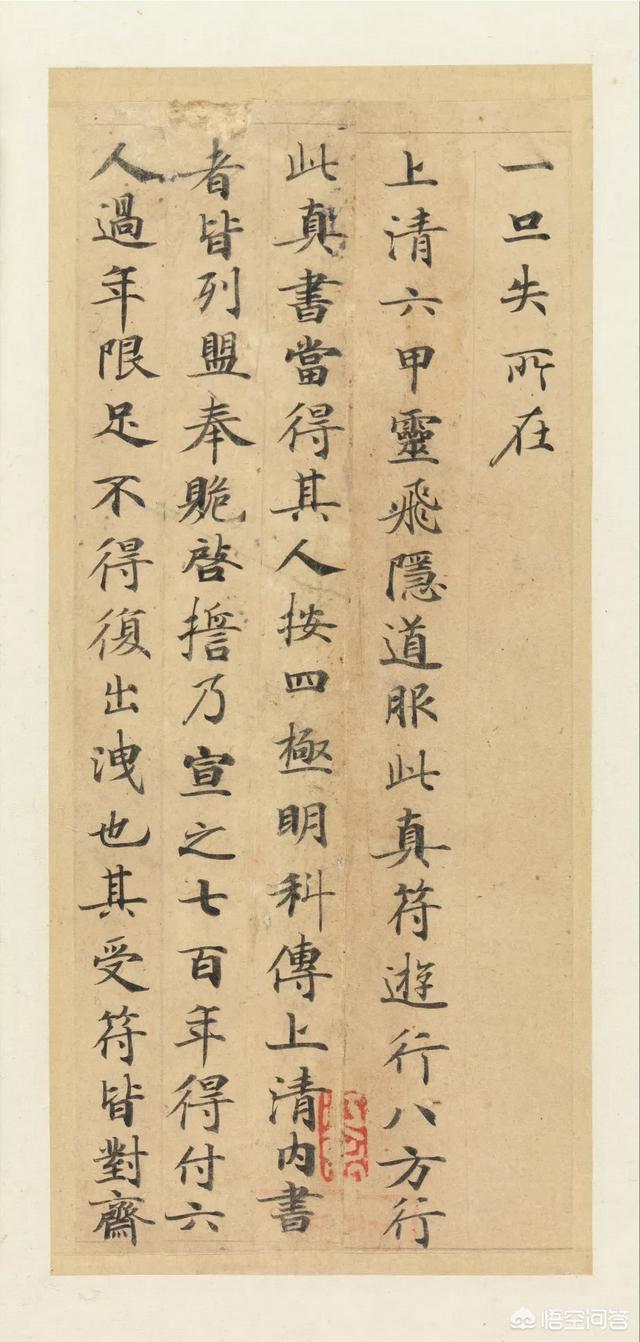 一旦失所在
上清六甲靈飛隱道服此真符遊行八方行
此真書當得其人按四極明科傳上清內書
者皆列盟奉贶啓誓乃宣之七百年得付六
人過年限足不得復出洩也其受符皆對齋
悟空问答